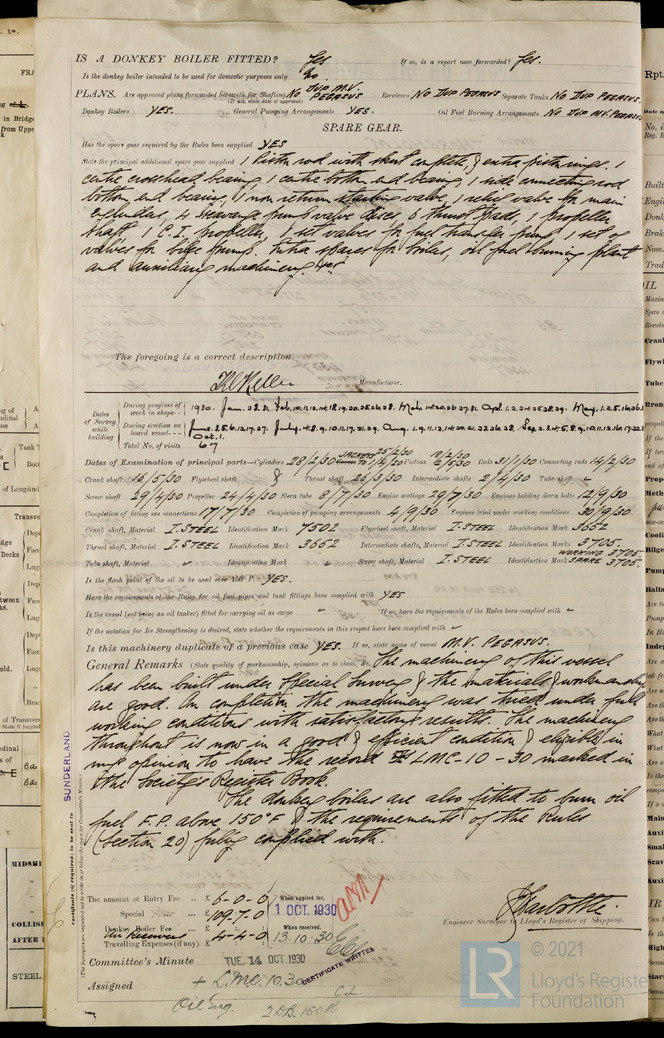 IS A DONKEY BOILER FITTED? Yes If so, is a report now forwarded? Yes.
Is the donkey boiler intended to be used for domestic purposes only No.
PLANS. Are approved plans forwarded herewith for Shafting No DUP M.V. PEGASUS Receivers No DUP PEGASUS Separate Tanks No DUP PEGASUS.
(If not, state date of approval)
Donkey Boilers YES. General Pumping Arrangements YES. Oil Fuel Burning Arrangements No DUP M.V. PEGASUS.
SPARE GEAR.
Has the spare gear required by the Rules been supplied YES
State the principal additional spare gear supplied 1 piston rod with skirt complete & extra piston rings. 1
centre crosshead bearing, 1 centre bottom end bearing, 1 side connecting rod
bottom end bearing, 1 non return starting valve, 1 relief valve for main
cylinders, 4 scavenge pump valve discs, 6 thrust pads, 1 propeller
shaft 1 C.I. propeller, 1 set valves for fuel transfer pump 1 set of
valves for bilge pumps. Extra spares for boiler, oil fuel burning plant
and auxiliary machinery.
The foregoing is a correct description,
Manufacturer.
Dates of Survey while building
During progress of work in shops 1930. Jan. 28. 31. Feb. 10. 11. 12. 14. 18. 19. 20. 25. 26. 28. Mch. 14. 20. 26. 27. 31. Apl. 1. 2. 24. 25. 28. 29. May. 1. 2. 5. 16.
During erection on board vessel June. 2. 5. 6. 12. 17. 27. July. 4. 8. 9. 10. 11. 17. 21. 29. Aug. 1. 9. 11. 12. 14. 20. 21. 22. 26. 28. Sep. 2. 3. 4. 5. 8. 9. 10. 11. 12. 16. 17.
Oct. 1.
Total No. of visits 67
Dates of Examination of principal parts—Cylinders 28/2/30 JACKETS 25/2/30 TO 1/4/30 Pistons 18/2/30 2/5/30 Rods 31/1/30 Connecting rods 14/2/30
Crank shaft 16/5/30 Flywheel shaft Thrust shaft 20/3/30 Intermediate shafts 2/4/30 Tube shaft
Screw shaft 29/4/30 Propeller 24/4/30 Stern tube 8/7/30 Engine seatings 29/7/30 Engines holding down bolts 12/9/30
Completion of fitting sea connections 17/7/30 Completion of pumping arrangements 4/9/30 Engines tried under working conditions 30/9/30
Crank shaft, Material I. STEEL Identification Mark 7502 Flywheel shaft, Material I. STEEL Identification Mark 3652
Thrust shaft, Material I. STEEL Identification Mark 3652 Intermediate shafts, Material I. STEEL Identification Marks 3705.
Tube shaft, Material Identification Mark Screw shaft, Material I. STEEL Identification Mark WORKING 3705 SPARE 3705.
Is the flash point of the oil to be used over 150° F. YES.
Have the requirements of the Rules for oil fuel pipes and tank fittings been complied with YES
Is the vessel (not being an oil tanker) fitted for carrying oil as cargo If so, have the requirements of the Rules been complied with
If the notation for Ice Strengthening is desired, state whether the requirements in this respect have been complied with
Is this machinery duplicate of a previous case YES. If so, state name of vessel M.V. PEGASUS.
General Remarks (State quality of workmanship, opinions as to class, &c. The machinery of this vessel
has been built under Special Survey & the materials & workmanship
are good. On completion the machinery was tried under full
working conditions with satisfactory results. The machinery
throughout is now in a good & efficient condition & eligible in
my opinion to have the record LMC-10-30 marked in
the Society's Register Book.
The donkey boilers are also fitted to burn oil
fuel F.P. above 150°F & the requirements of the Rules
(Section 20) fully complied with.
The amount of Entry Fee £ 6-0-0
Special £ 109-7-0
Donkey Boiler Fee £ 4-4-0
Travelling Expenses (if any) £
When applied for, 1 OCT. 1930
When received, 13.10.30
Engineer Surveyor to Lloyd's Register of Shipping.
Committee's Minute TUE. 14 OCT 1930
Assigned + L.M.C. 10.30 CERTIFICATE WRITTEN
C.L.
Oil Eng. 2DB. 150 lb
SUNDERLAND
© 2021
LR Lloyd's Register
Foundation